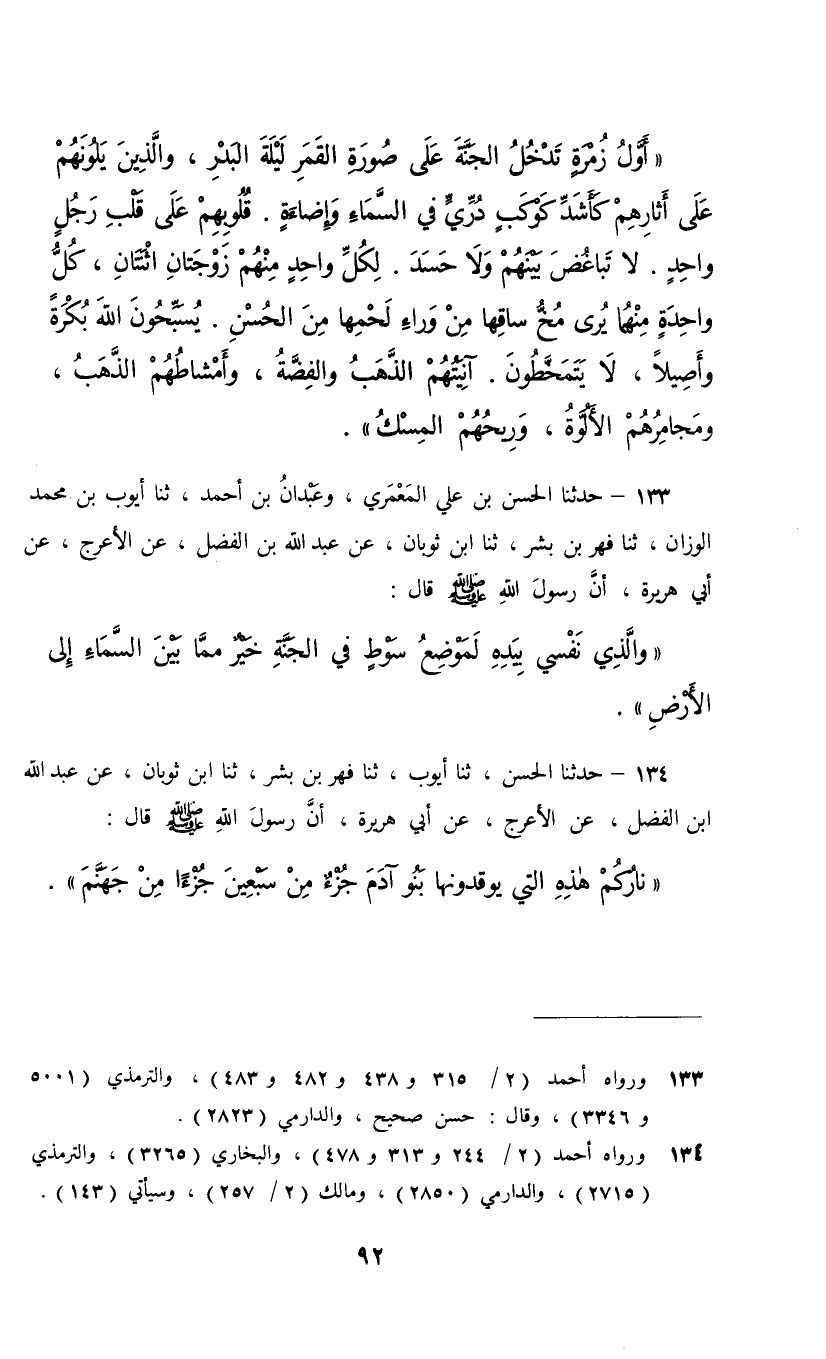 « أَوَّلُ زُمْرَةٍ تَدْخُلُ الجَنَّةَ عَلَى صُورَةِ القَمَرِ لَيْلَةَ البَدْرِ ، والَّذِينَ يَلُونَهُمْ
عَلَى أَثارِهِمْ كَأَشَدِّ كَوْكَبٍ دُرِّيٍّ في السَّمَاءِ وَإِضاءَةٍ . قُلُوبِهِمْ عَلَى قَلْبِ رَجُلٍ
واحِدٍ . لا تَباغُضَ بَيْنَهُمْ وَلَا حَسَدَ . لِكُلِّ واحِدٍ مِنْهُمْ زَوْجَتانِ اثْنَتَانِ ، كُلُّ
واحِدَةٍ مِنْهُما يُرى مُخُّ ساقِها مِنْ وَراءِ لَحْمِها مِنَ الحُسْنِ . يُسَبِّحُونَ اللهَ بُكْرَةً
وأَصِيلاً ، لَا يَتَمَخَّطُونَ . آنِيَتُهُمْ الذَّهَبُ والفِضَّةُ ، وأَمْشاطُهُمْ الذَّهَبُ ،
ومَجامِرُهُمْ الأَلُوَّةُ ، وَرِيحُهُمْ المِسْكُ » .
١٣٣ – حدثنا الحسن بن علي المَعْمَري ، وعَبْدانُ بن أحمد ، ثنا أيوب بن محمد
الوزان ، ثنا فهر بن بشر ، ثنا ابن ثوبان ، عن عبد الله بن الفضل ، عن الأعرج ، عن
أبي هريرة ، أنَّ رسولَ اللهِ ﷺ قال :
« والَّذِي نَفْسي بِيَدِهِ لَمَوْضِعُ سَوْطٍ في الجَنَّةِ خَيْرٌ ممَّا بَيْنَ السَّمَاءِ إِلى
الأَرْضِ » .
١٣٤ – حدثنا الحسن ، ثنا أيوب ، ثنا فهر بن بشر ، ثنا ابن ثوبان ، عن عبد الله
ابن الفضل ، عن الأعرج ، عن أبي هريرة ، أنَّ رسولَ اللهِ ﷺ قال :
« نارُكُمْ هٰذِهِ التي يوقدونها بَنُو آدَمَ جُزْءٌ مِنْ سَبْعِينَ جُزْءًا مِنْ جَهَنَّمَ » .
١٣٣ ورواه أحمد ( ٢ / ٣١٥ و ٤٣٨ و ٤٨٢ و ٤٨٣ ) ، والترمذي ( ٥٠٠١
و ٣٣٤٦ ) ، وقال : حسن صحيح ، والدارمي ( ٢٨٢٣ ) .
١٣٤ ورواه أحمد ( ٢ / ٢٤٤ و ٣١٣ و ٤٧٨ ) ، والبخاري ( ٣٢٦٥ ) ، والترمذي
( ٢٧١٥ ) ، والدارمي ( ٢٨٥٠ ) ، ومالك ( ٢ / ٢٥٧ ) ، وسيأتي ( ١٤٣ ) .
٩٢